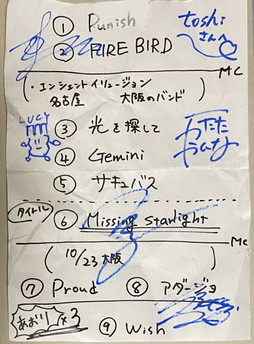 ① Punish
toshi
さんへ
② FIRE BIRD
MC
・エンシェントイリュージョン
名古屋 大阪のバンド
LUCY
③ 光を探して
④ Gemini
⑤ サキュバス
タイトル
⑥ Missing starlight
MC
10/23 大阪
⑦ Proud ⑧ アダージョ
あおり×3
⑨ Wish